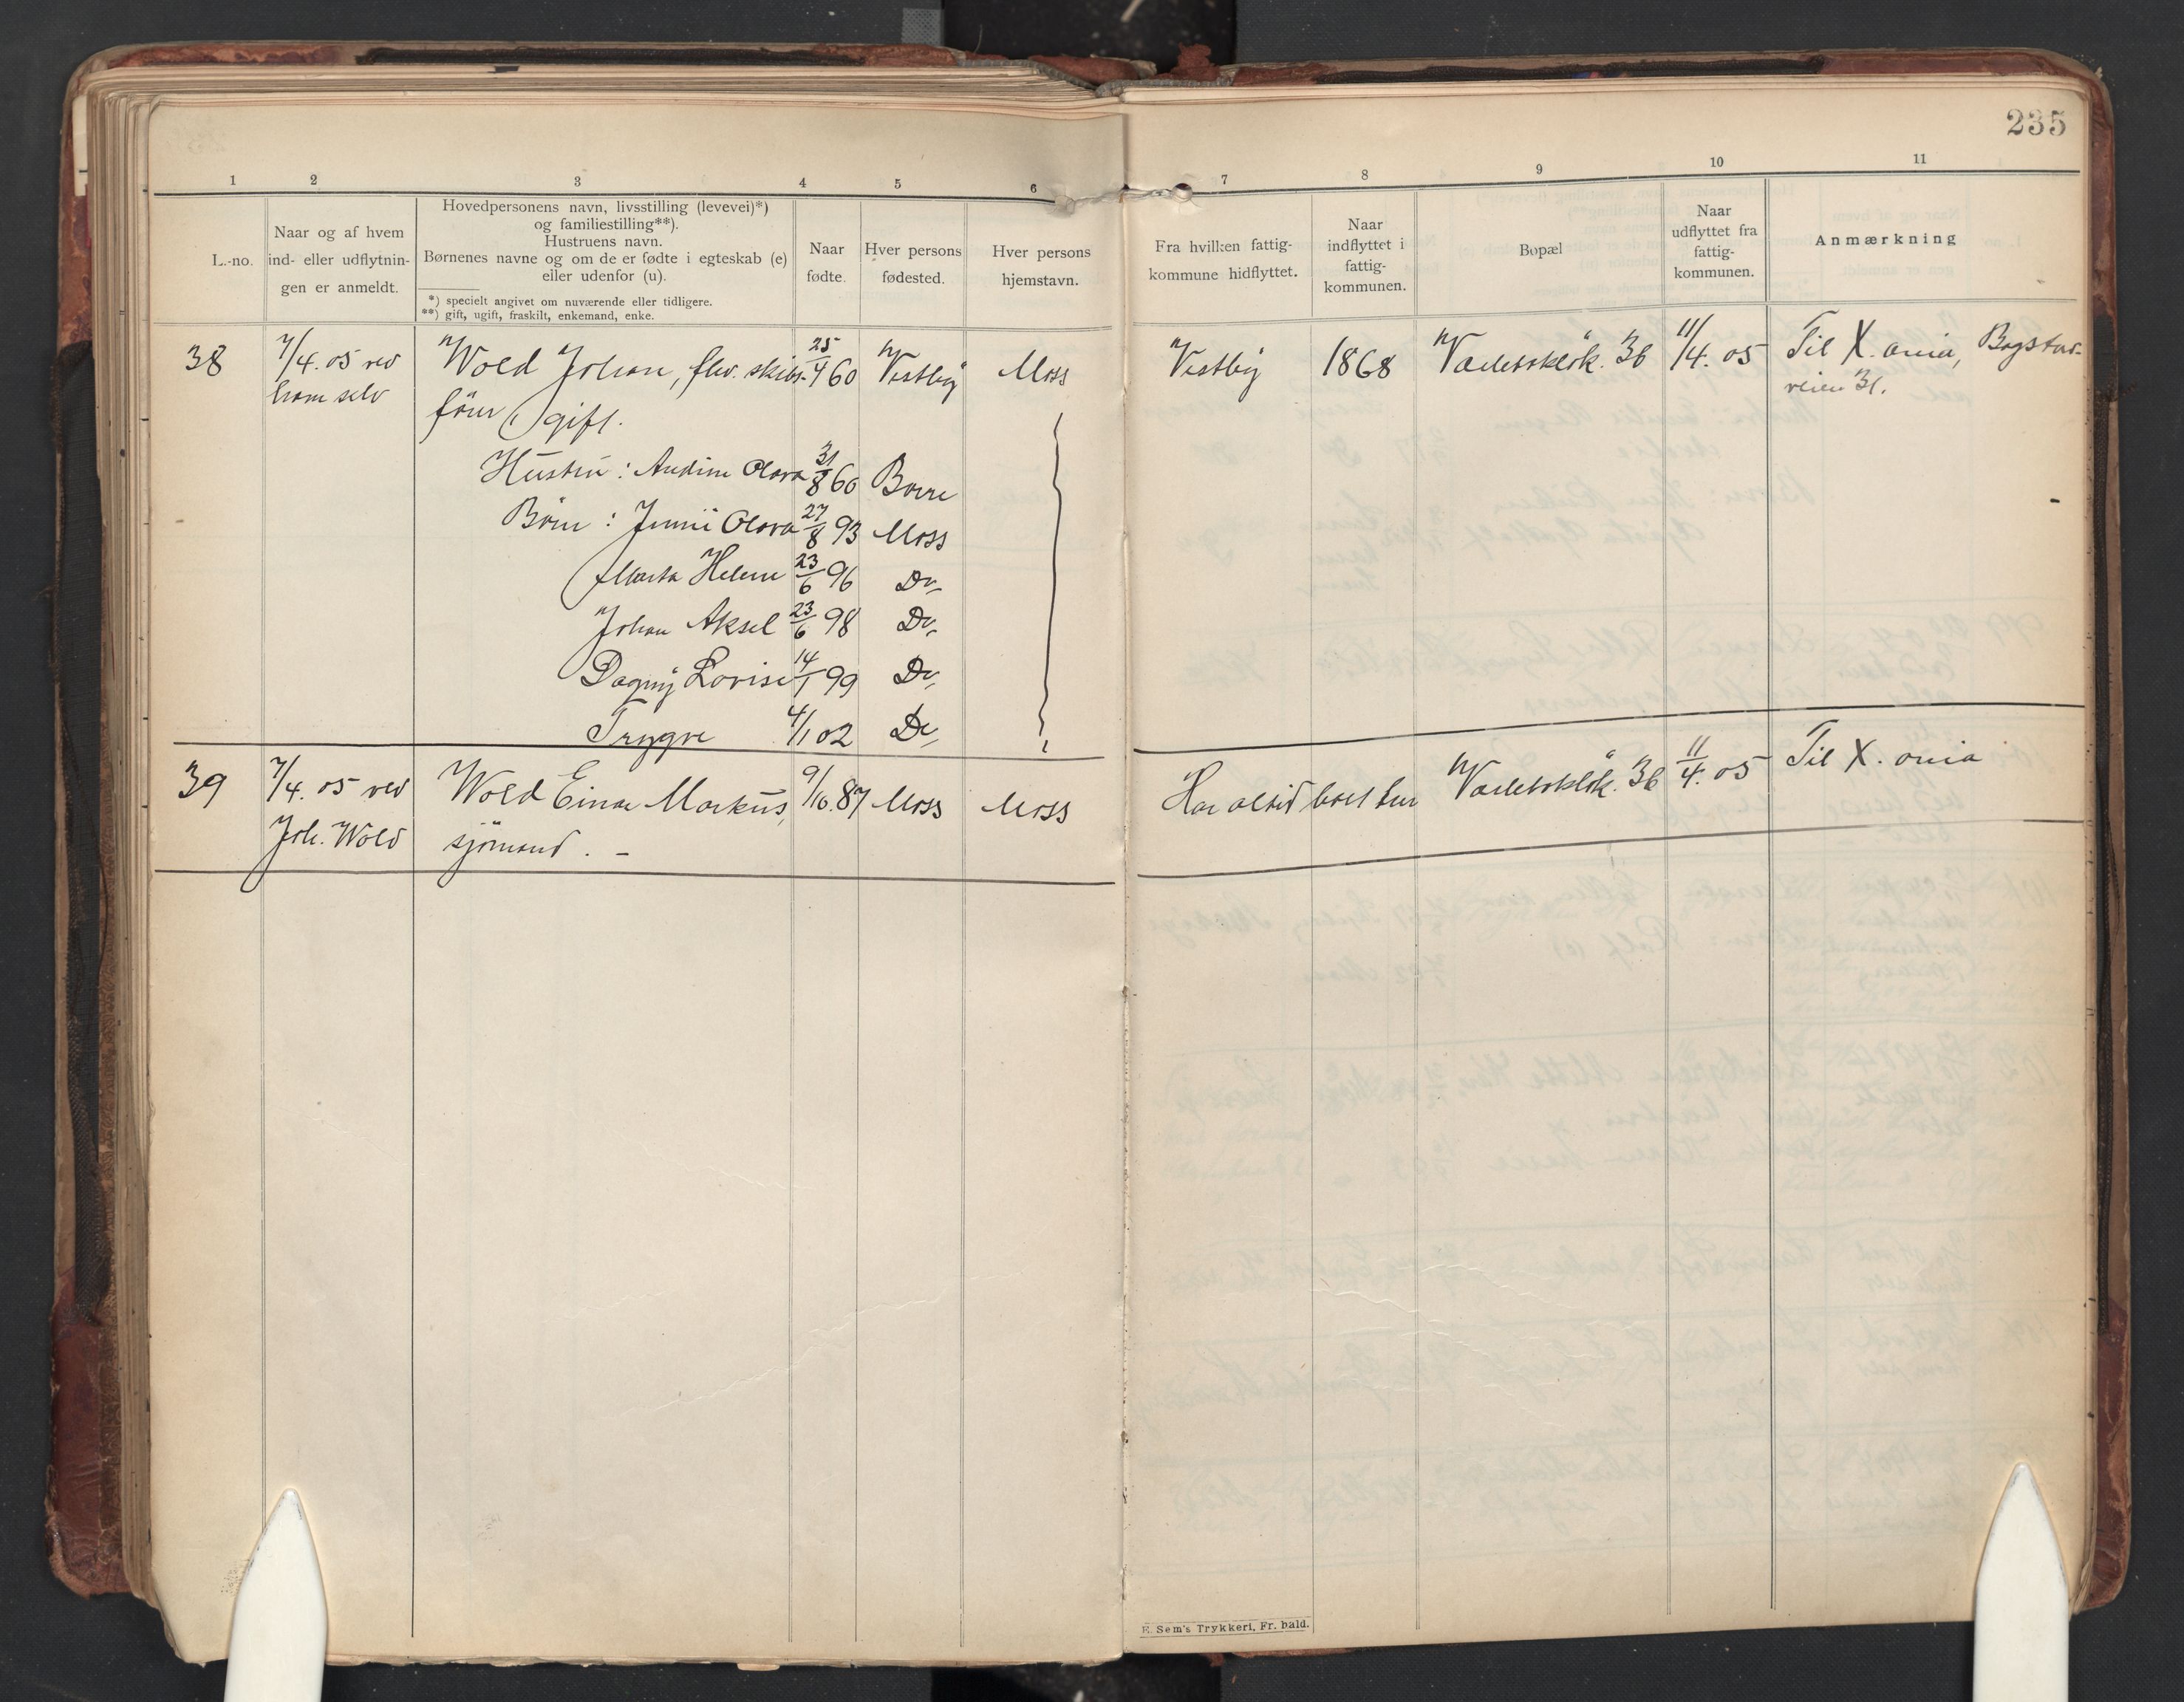 235
1 2 3 4 5 6 7 8 9 10 11
L.-no.
Naar og af hvem
ind- eller udflytnin-
gen er anmeldt.
Hovedpersonens navn, livsstilling (levevei)*)
og familiestilling**).
Hustruens navn.
Børnenes navne og om de er fødte i egteskab (e)
eller udenfor (u).
*) specielt angivet om nuværende eller tidligere.
**) gift, ugift, fraskilt, enkemand, enke.
Naar
fødte.
Hver persons
fødested.
Hver persons
hjemstavn.
Fra hvilken fattig-
kommune hidflyttet.
Naar
indflyttet i
fattig-
kommunen.
Bopæl
Naar
udflyttet fra
fattig-
kommunen.
Anmærkning
38 7/4. 05 ved Wold Johan, fhv. skibs- 25/4 60 Vestby Moss Vestby 1868 36 11/4. 05 Til X.ania, Bogstad-
ham selv fører, gift. veien 31.
Hustru : Andine Olava 31/8 60 Borre
Børn : Jenni Olava 27/8 93 Moss
Marta Helene 23/6 96 Do,
Johan Aksel 23/6 98 Do,
Dagny Lovise 14/1 99 Do,
Trygve 4/1 02 Do,
39 7/4. 05 ved Wold Einar Markus, 9/10. 87 Moss Moss Har altid boet her 36 11/4. 05 Til X.ania
Joh. Wold sjømand. –
E. Sem's Trykkeri, Fr. hald.